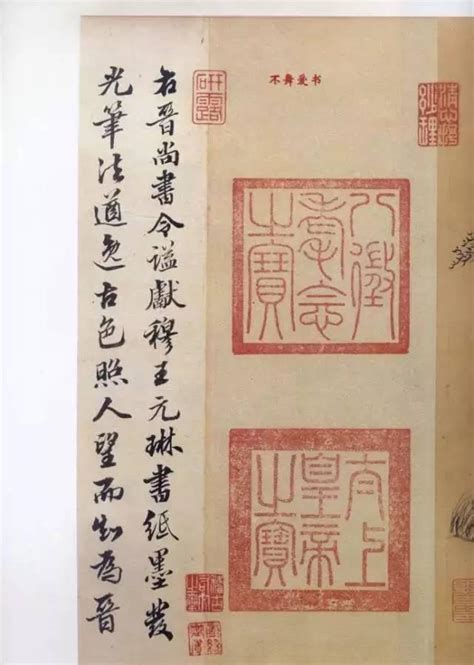 不舞爱书
八徵
耄念
之寶
太上
皇帝
之寶
研露
右晉尚書令謚獻穆王元琳書紙墨發
光筆法遒逸古色照人望而知為晉